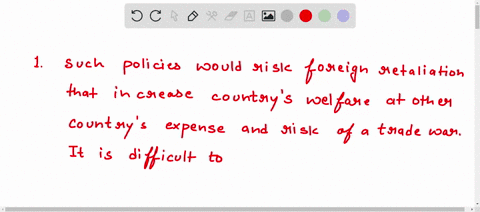 1. Such policies would risk foreign retaliation
that increase country's welfare at other
country's expense and risk of a trade war.
It is difficult to